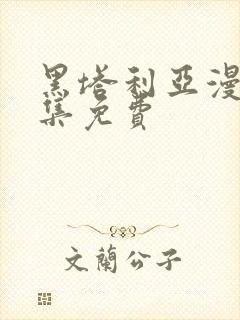 黑塔利亚漫
集免费
文蘭公子